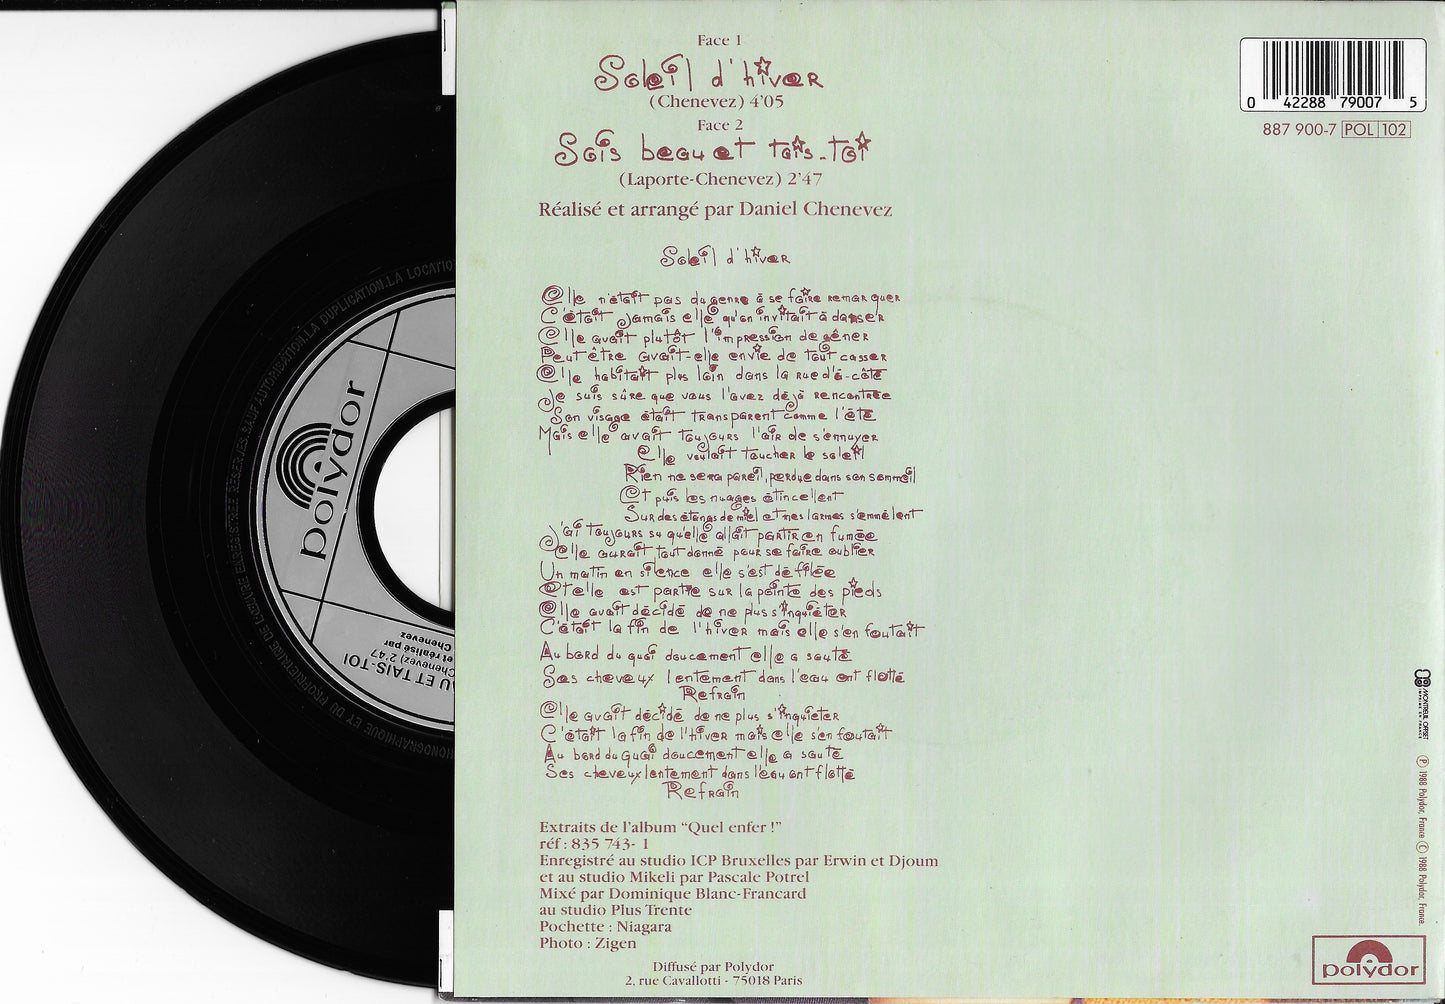 Face 1
Soleil d'hiver
(Chenevez) 4'05
Face 2
Sois beau et tais-toi
(Laporte-Chenevez) 2'47
Réalisé et arrangé par Daniel Chenevez
Soleil d'hiver
Elle n'était pas du genre à se faire remarquer
C'était jamais elle qu'on invitait à danser
Elle avait plutôt l'impression de gêner
Peut être avait-elle envie de tout casser
Elle habitait plus loin dans la rue d'à-côté
Je suis sûre que vous l'avez déjà rencontrée
Son visage était transparent comme l'été
Mais elle avait toujours l'air de s'ennuyer
Elle voulait toucher le soleil
Rien ne sera pareil, perdue dans son sommeil
Et puis les nuages étincellent
Sur des étangs de miel et mes larmes s'emmêlent
J'ai toujours su qu'elle allait partir en fumée
Elle aurait tout donné pour se faire oublier
Un matin en silence elle s'est défilée
Et elle est partie sur la pointe des pieds
Elle avait décidé de ne plus s'inquiéter
C'était la fin de l'hiver mais elle s'en foutait
Au bord du quai doucement elle a sauté
Ses cheveux lentement dans l'eau ont flotté
Refrain
Elle avait décidé de ne plus s'inquiéter
C'était la fin de l'hiver mais elle s'en foutait
Au bord du quai doucement elle a sauté
Ses cheveux lentement dans l'eau ont flotté
Refrain
Extraits de l'album "Quel enfer !"
réf : 835 743- 1
Enregistré au studio ICP Bruxelles par Erwin et Djoum
et au studio Mikeli par Pascale Potrel
Mixé par Dominique Blanc-Francard
au studio Plus Trente
Pochette : Niagara
Photo : Zigen
Diffusé par Polydor
2, rue Cavallotti - 75018 Paris
0 42288 79007 5
887 900-7 POL 102
MONTREUIL OFFSET
IMPRIMÉ EN FRANCE
℗ 1988 Polydor, France © 1988 Polydor, France
polydor
polydor
AU ET TAIS-TOI
Chenevez) 2'47
et réalisé par
Chenevez
PHONOGRAPHIQUE ET DU PROPRIETAIRE DE L'OEUVRE ENREGISTREE RESERVES. SAUF AUTORISATION. LA DUPLICATION. LA LOCATION